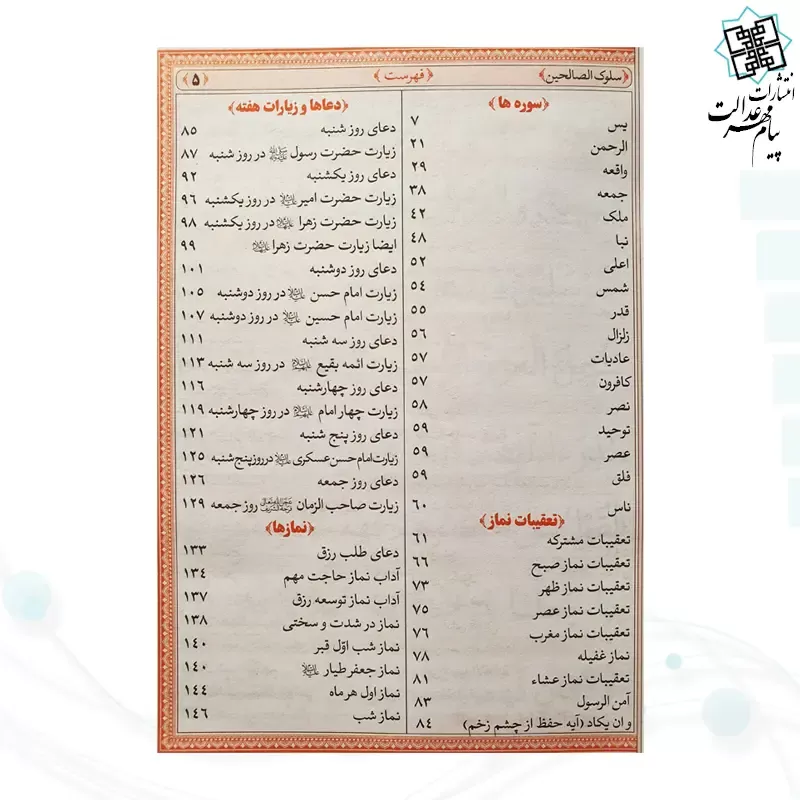 انتشارات
پیام مهر عدالت
﴿سلوک الصالحین﴾ ﴿فهرست﴾ ﴿۵﴾
﴿سوره ها﴾
یس ۷
الرحمن ۲۱
واقعه ۲۹
جمعه ۳۸
ملک ۴۲
نبا ۴۸
اعلی ۵۲
شمس ۵۴
قدر ۵۵
زلزال ۵۶
عادیات ۵۷
کافرون ۵۷
نصر ۵۸
توحید ۵۹
عصر ۵۹
فلق ۵۹
ناس ۶۰
﴿تعقیبات نماز﴾
تعقیبات مشترکه ۶۱
تعقیبات نماز صبح ۶۶
تعقیبات نماز ظهر ۷۳
تعقیبات نماز عصر ۷۵
تعقیبات نماز مغرب ۷۶
نماز غفیله ۷۸
تعقیبات نماز عشاء ۸۱
آمن الرسول ۸۳
و ان یکاد (آیه حفظ از چشم زخم) ۸۴
﴿دعاها و زیارات هفته﴾
دعای روز شنبه ۸۵
زیارت حضرت رسول در روز شنبه ۸۷
دعای روز یکشنبه ۹۲
زیارت حضرت امیر در روز یکشنبه ۹۶
زیارت حضرت زهرا در روز یکشنبه ۹۸
ایضا زیارت حضرت زهرا ۹۹
دعای روز دوشنبه ۱۰۱
زیارت امام حسن در روز دوشنبه ۱۰۵
زیارت امام حسین در روز دوشنبه ۱۰۷
دعای روز سه شنبه ۱۱۱
زیارت ائمه بقیع در روز سه شنبه ۱۱۳
دعای روز چهارشنبه ۱۱۶
زیارت چهار امام در روز چهارشنبه ۱۱۹
دعای روز پنج شنبه ۱۲۱
زیارت امام حسن عسکری در روز پنج شنبه ۱۲۵
دعای روز جمعه ۱۲۶
زیارت صاحب الزمان روز جمعه ۱۲۹
﴿نمازها﴾
دعای طلب رزق ۱۳۳
آداب نماز حاجت مهم ۱۳۴
آداب نماز توسعه رزق ۱۳۷
نماز در شدت و سختی ۱۳۸
نماز شب اوّل قبر ۱۴۰
نماز جعفر طیار ۱۴۰
نماز اول هر ماه ۱۴۴
نماز شب ۱۴۶